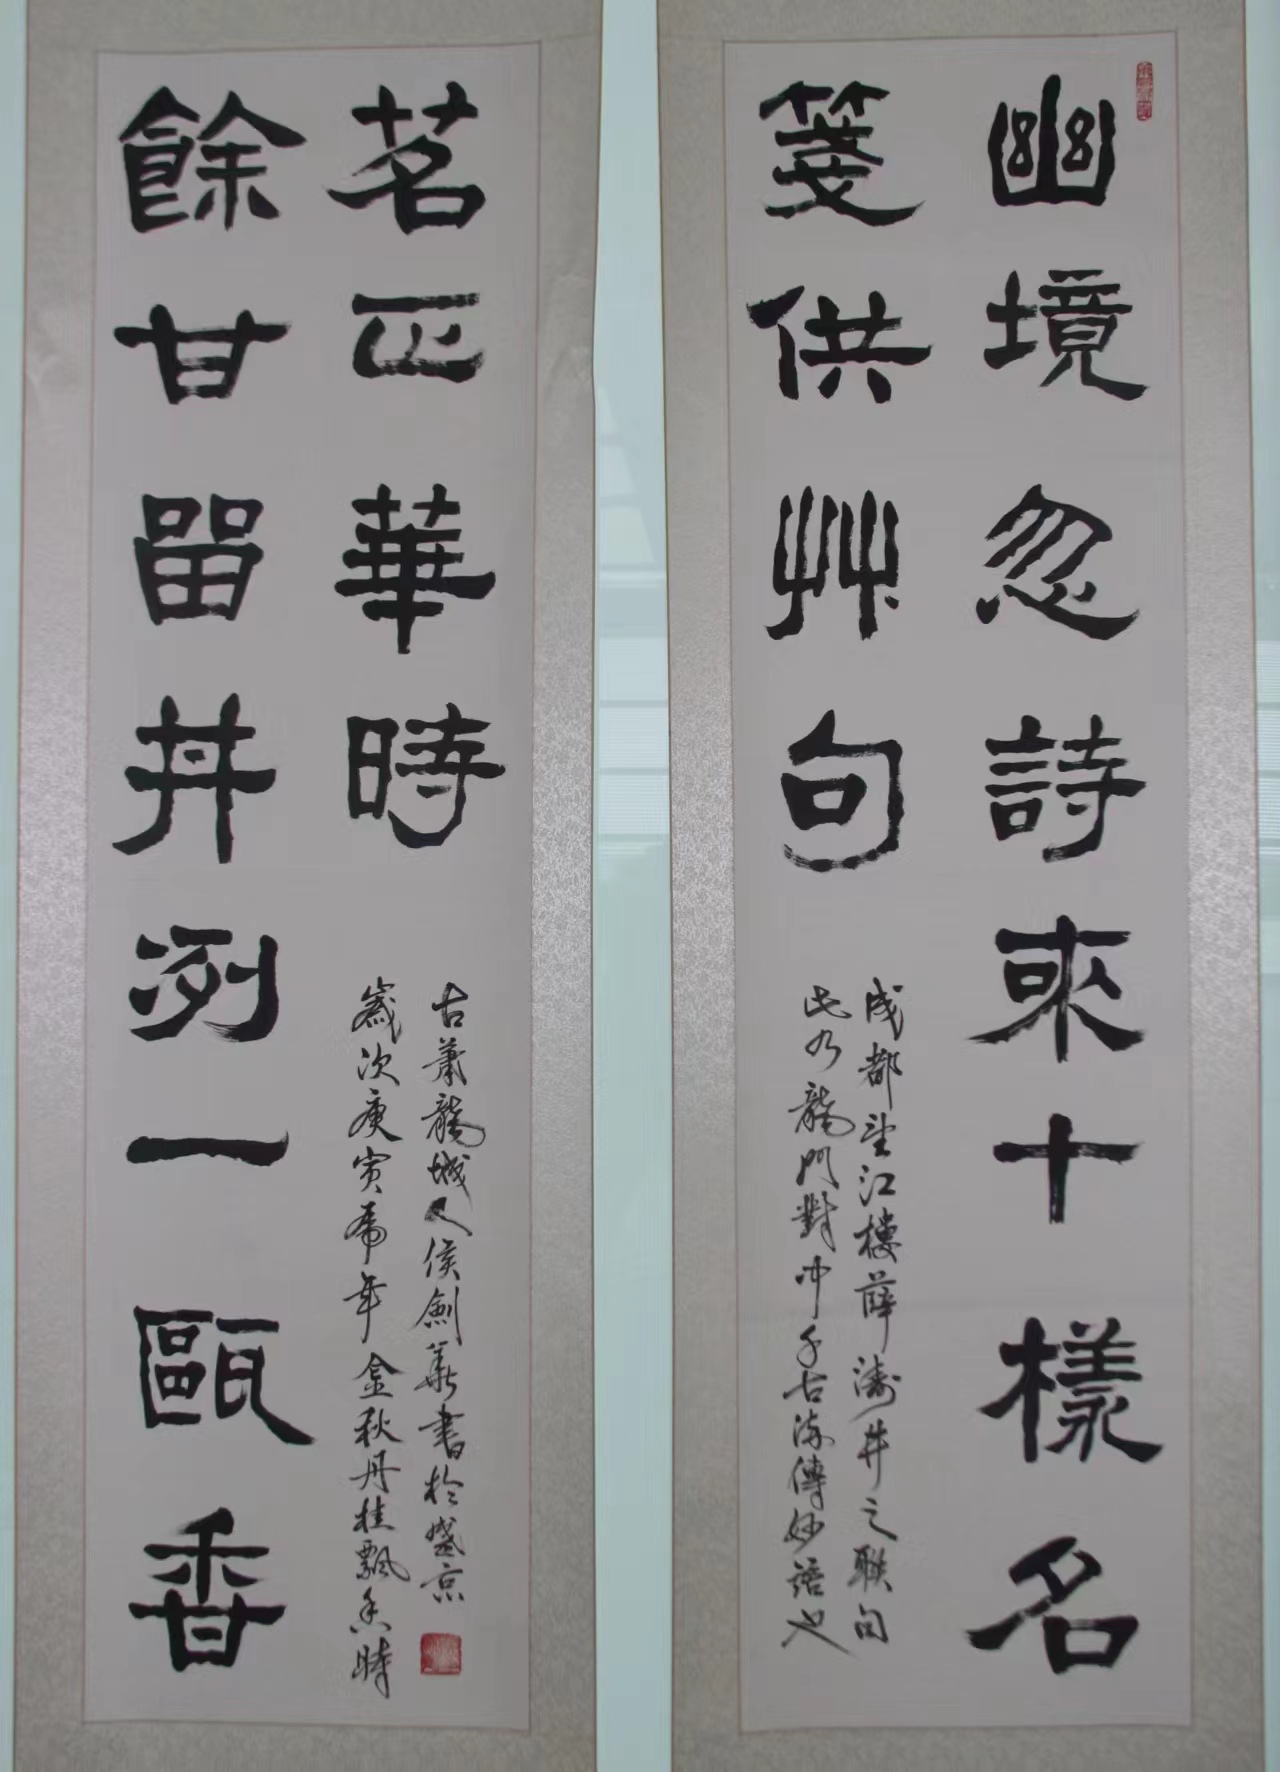 幽境忽詩來十樣名
箋供艸句
成都望江樓薛濤井之联句
此乃龍門對冲千古流傳妙語也
餘甘畱井洌一甌香
茗正華時
古蕭龍城人侯劍華書於盛京
歲次庚寅虎年金秋丹桂飄香時